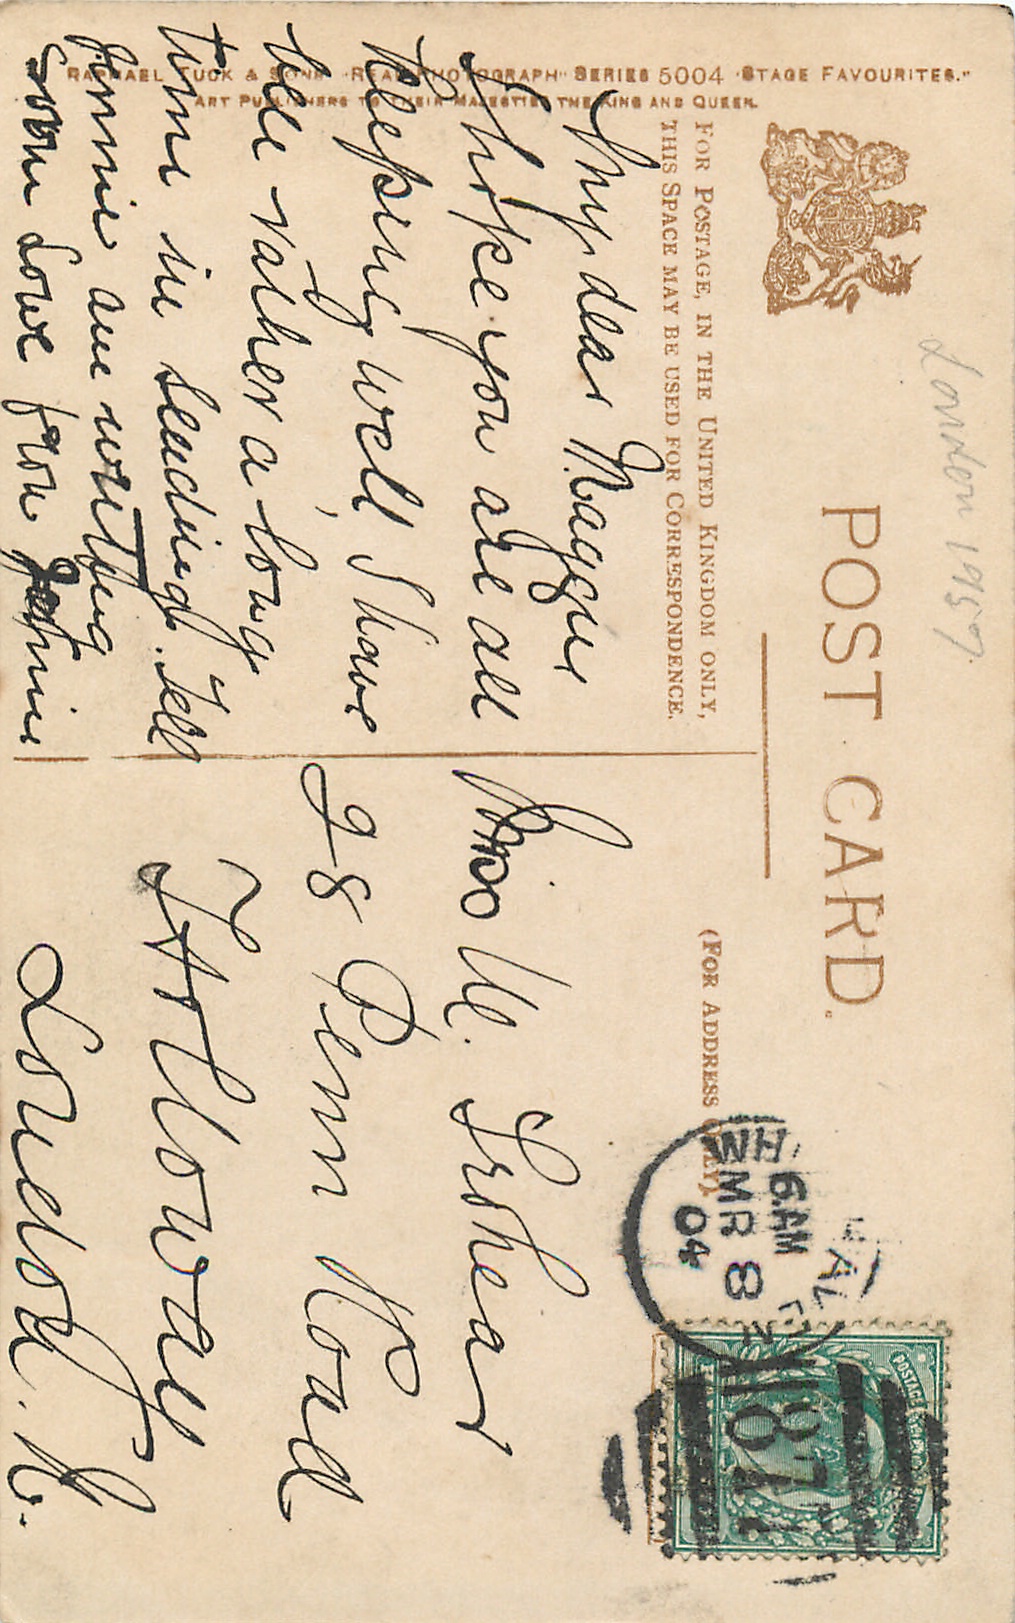 RAPHAEL TUCK & SONS' "REAL PHOTOGRAPH" SERIES 5004 "STAGE FAVOURITES."
ART PUBLISHERS TO THEIR MAJESTIES THE KING AND QUEEN.
London 1957
POST CARD.
FOR POSTAGE, IN THE UNITED KINGDOM ONLY,
THIS SPACE MAY BE USED FOR CORRESPONDENCE.
(FOR ADDRESS ONLY).
My dear Maggie
I hope you are all
keeping well I have
been rather a long
time in sending. Tell
Annie am writing
soon Love from
Miss M.
28 Penn Road
Holloway
London. N.
WH
6 AM
MR 8
04
POSTAGE